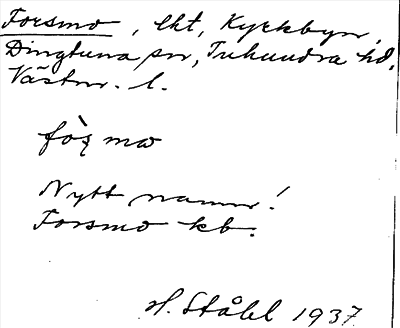 Forsmo, lht, Kyrkbyn,
Dingtuna sn, Tuhundra hd,
Västm. l.
fòʂ mω
Nytt namn!
Forsmo kb.
H. Ståhl 1937